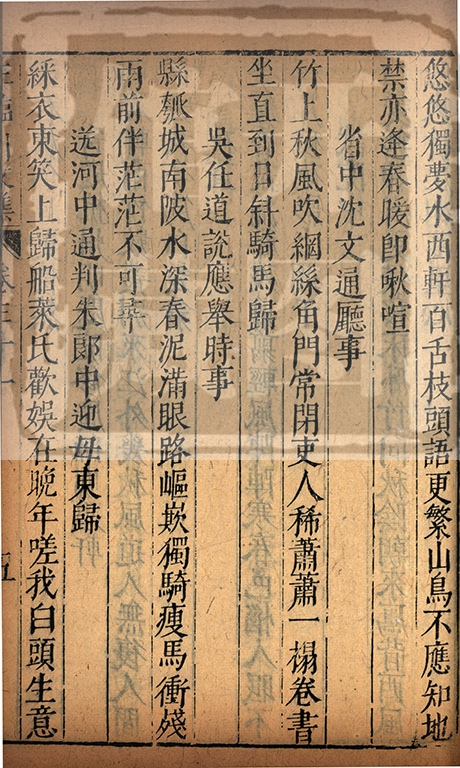 悠悠獨夢水西軒百舌枝頭語更繁山鳥不應知地
禁亦逢春暖即啾喧
省中沈文通廳事
竹上秋風吹網絲角門常閉吏人稀蕭蕭一榻卷書
坐直到日斜騎馬歸
吳任道說應舉時事
縣瓠城南陂水深春泥滿眼路嶇嶔獨騎瘦馬衝殘
雨前伴茫茫不可尋
送河中通判朱郎中迎母東歸
綵衣東笑上歸船萊氏歡娛在晚年嗟我白頭生意